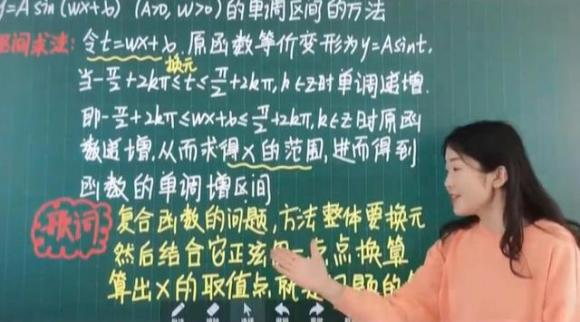 y=Asin(wx+b) (A>0,W>0)的单调区间的方法
间求法:令t=wx+b.原函数等价变形为y=Asint.
换元
当-π/2+2kπ≤t≤π/2+2kπ,k∈Z时单调递增.
即-π/2+2kπ≤wx+b≤π/2+2kπ,k∈Z时原函
数递增,从而求得X的范围,进而得到
函数的单调增区间
歌词
复合函数的问题,方法整体要换元
然后结合它正弦 一点点换算
算出X的取值点 就是问题的